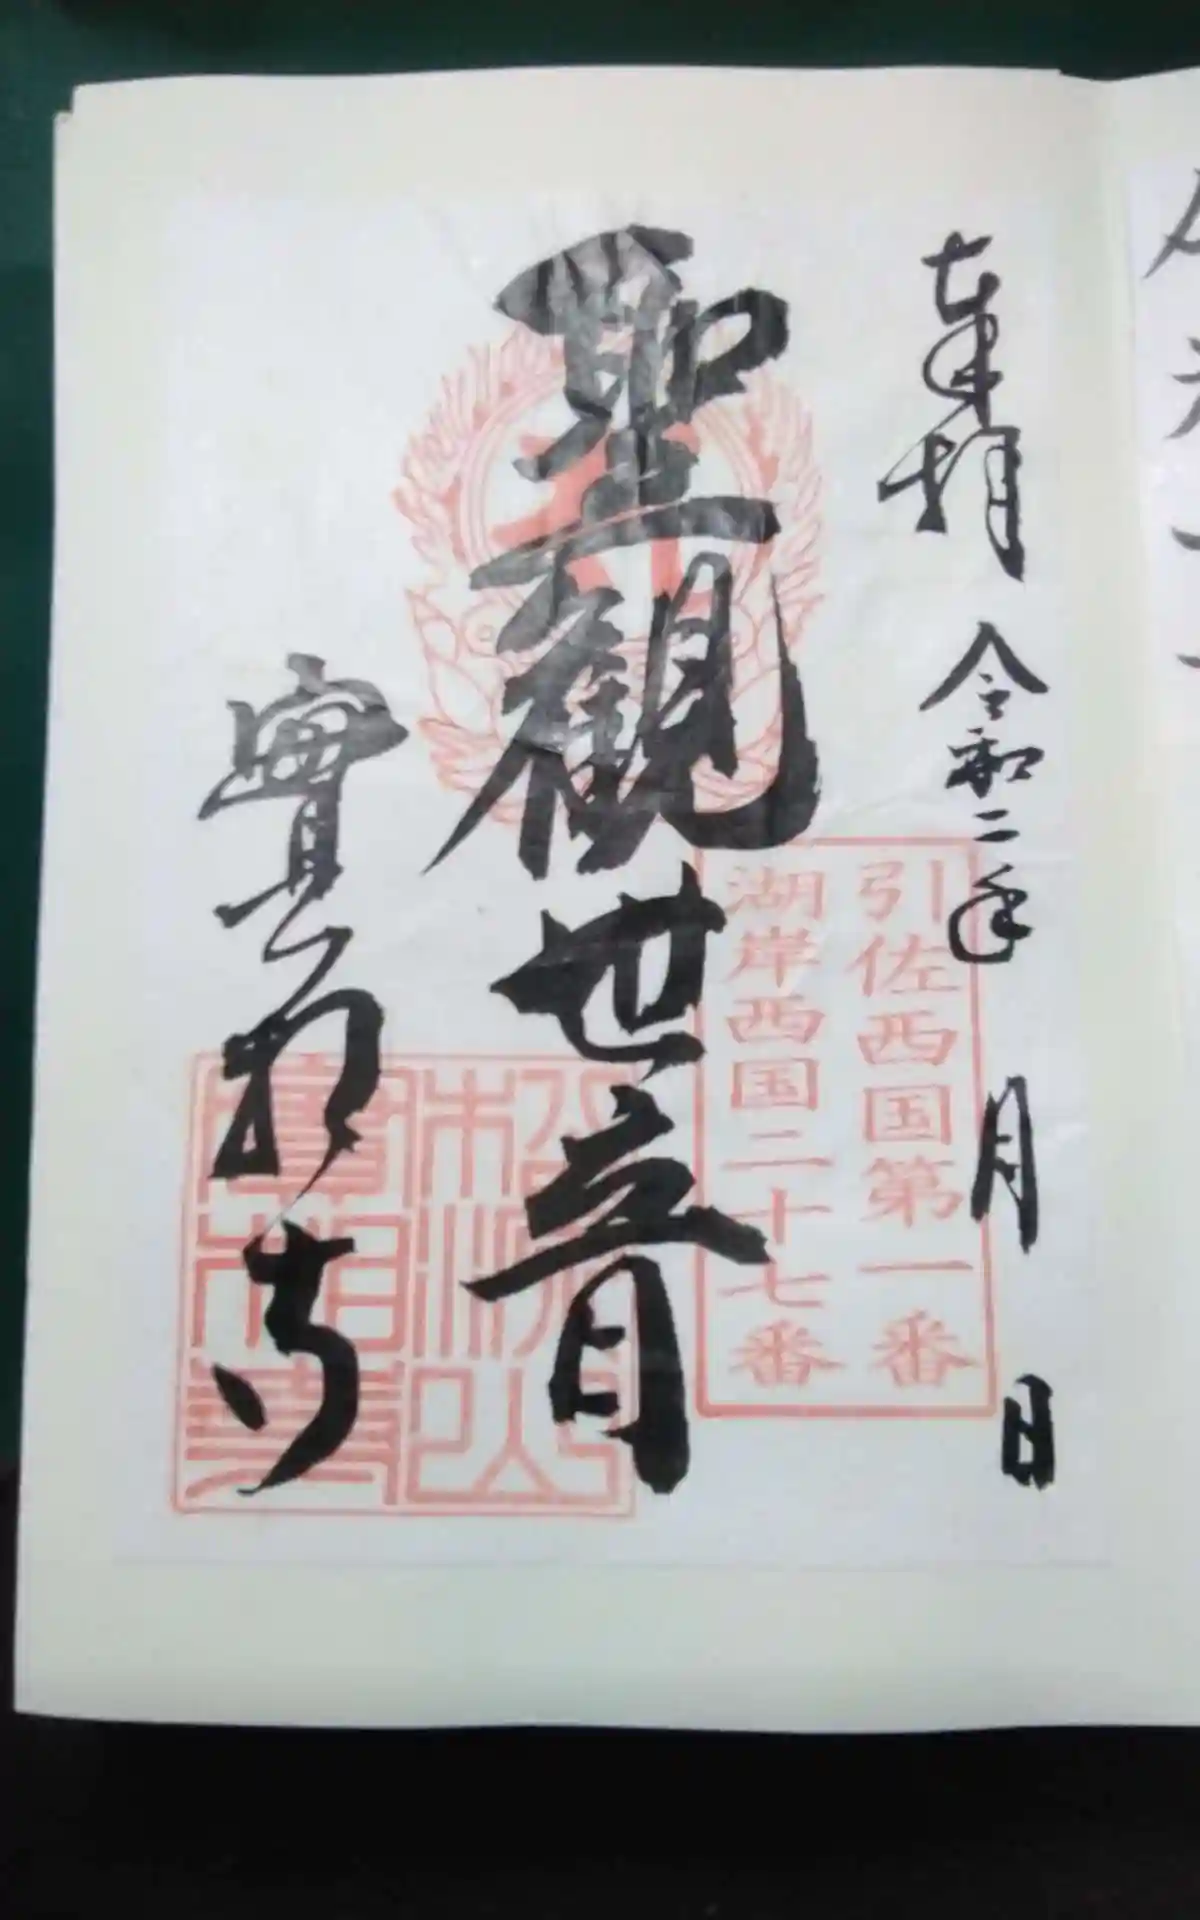 奉拝 令和二年 月 日
引佐西国第一番
湖岸西国二十七番
聖観世音
實相寺
實相寺